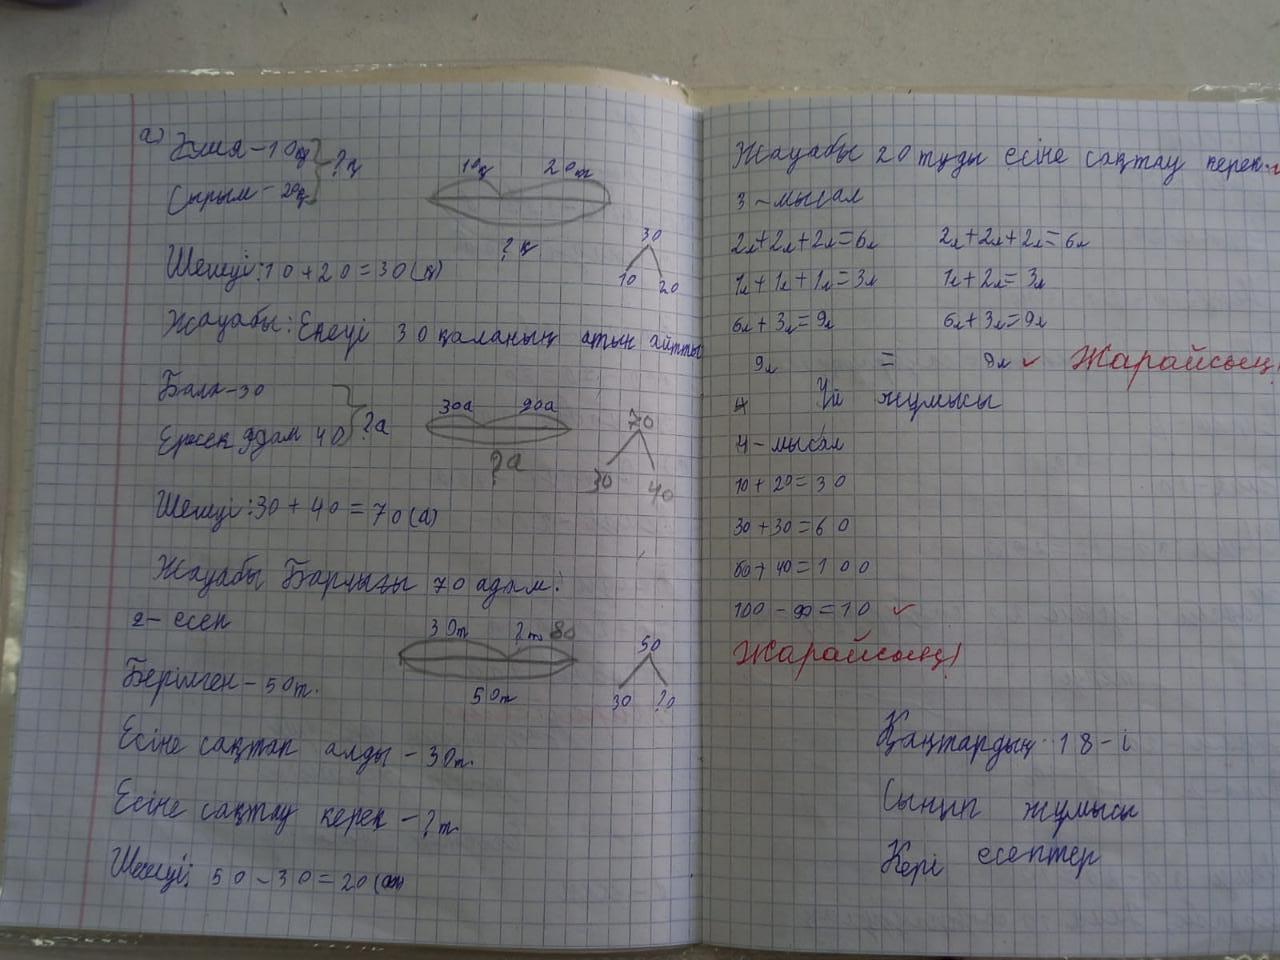 а) – 10қ
?қ
Сырым – 20қ
10қ 20қ
?қ
30
10 20
Шешуі: 10 + 20 = 30 (қ)
Жауабы: Екеуі 30 қаланың атын айтты
Бала – 30
?а
Ересек адам 40
30а 40а
?а
70
30 40
Шешуі: 30 + 40 = 70 (а)
Жауабы Барлығы 70 адам.
2 – есеп
30т ?т
50т
50
30 20
Берілген – 50т.
Есіне сақтап алды – 30т.
Есіне сақтау керек – ?т.
Шешуі: 50 – 30 = 20 (т)
Жауабы 20 туды есіне сақтау керек.
3 – мысал
2л + 2л + 2л = 6л 2л + 2л + 2л = 6л
1л + 1л + 1л = 3л 1л + 2л = 3л
6л + 3л = 9л 6л + 3л = 9л
9л = 9л Жарайсың!
Үй жұмысы
4 – мысал
10 + 20 = 30
30 + 30 = 60
60 + 40 = 100
100 – 90 = 10
Жарайсың!
Қаңтардың 18-і
Сынып жұмысы
Кері есептер